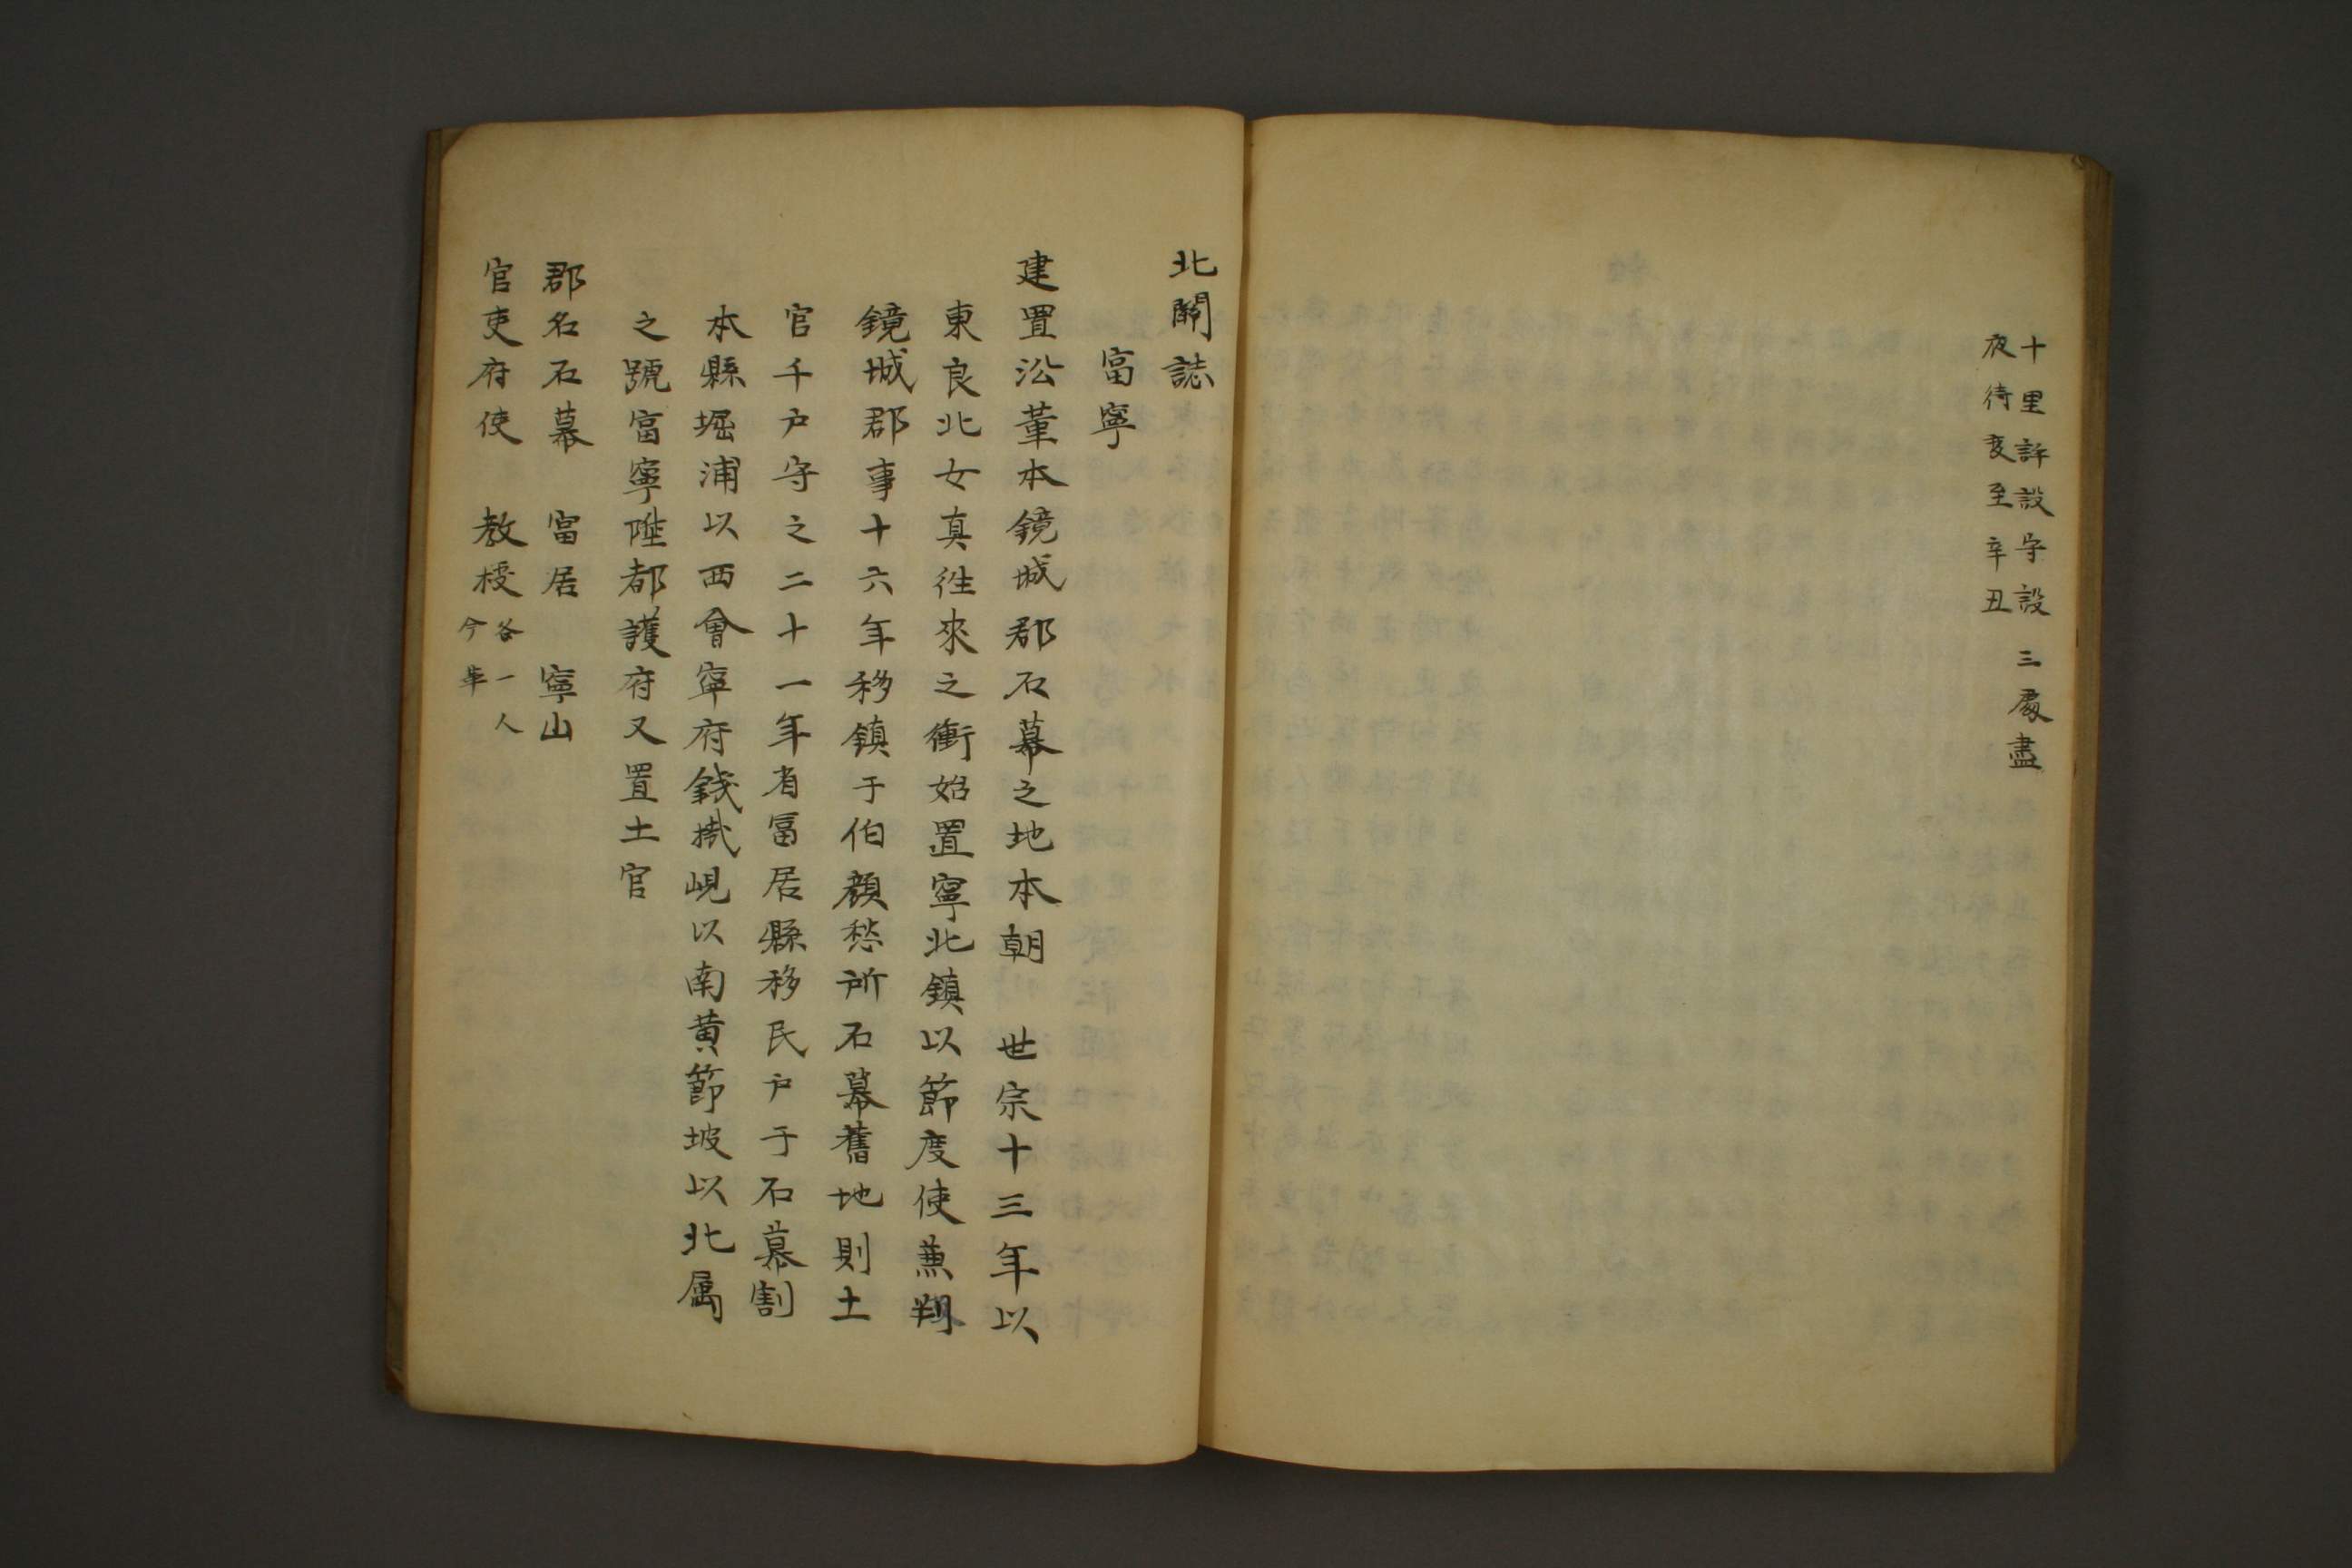 十里許設守設三處盡
夜待变至辛丑
北關誌
富寧
建置沿革本鏡城郡石幕之地本朝 世宗十三年以
東良北女真徃來之衝始置寧北鎮以節度使兼判
鏡城郡事十六年移鎮于伯顔愁所石幕舊地則土
官千户守之二十一年省富居縣移民户于石幕割
本縣堀浦以西會寧府錢掛峴以南黄節坡以北属
之號富寧陞都護府又置土官
郡名石幕 富居 寧山
官吏府使 教授各一人今革